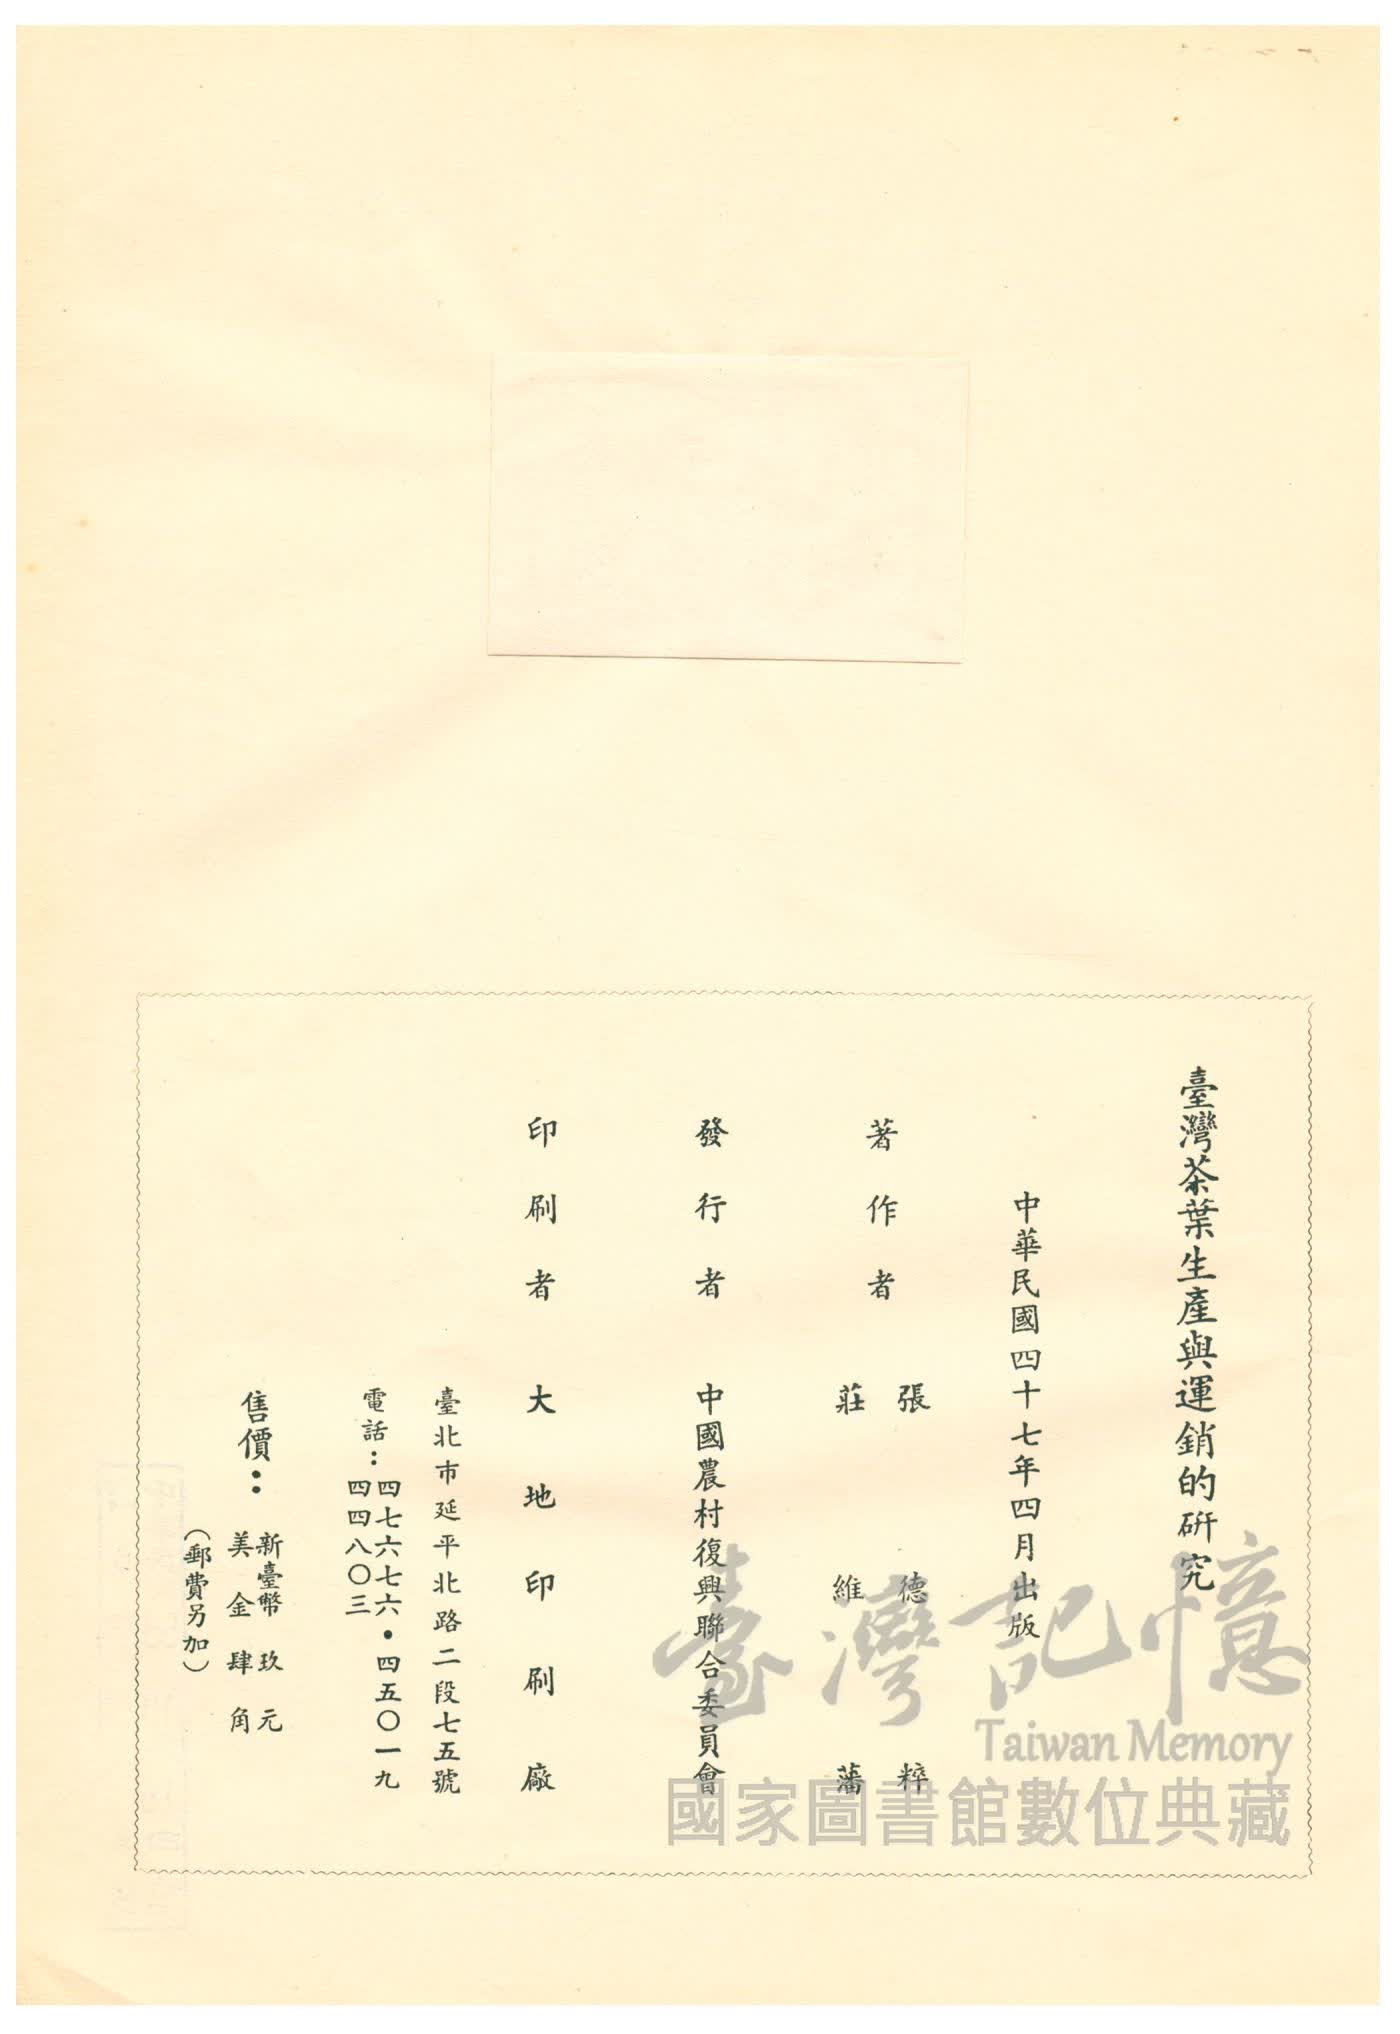 臺灣茶葉生產與運銷的研究
中華民國四十七年四月出版
著作者 張德粹
莊維藩
發行者 中國農村復興聯合委員會
印刷者 大地印刷廠
臺北市延平北路二段七五號
電話：四七六七六•四五〇一九
四四八〇三
售價： 新臺幣玖元
美金肆角
（郵費另加）
臺灣記憶
Taiwan Memory
國家圖書館數位典藏